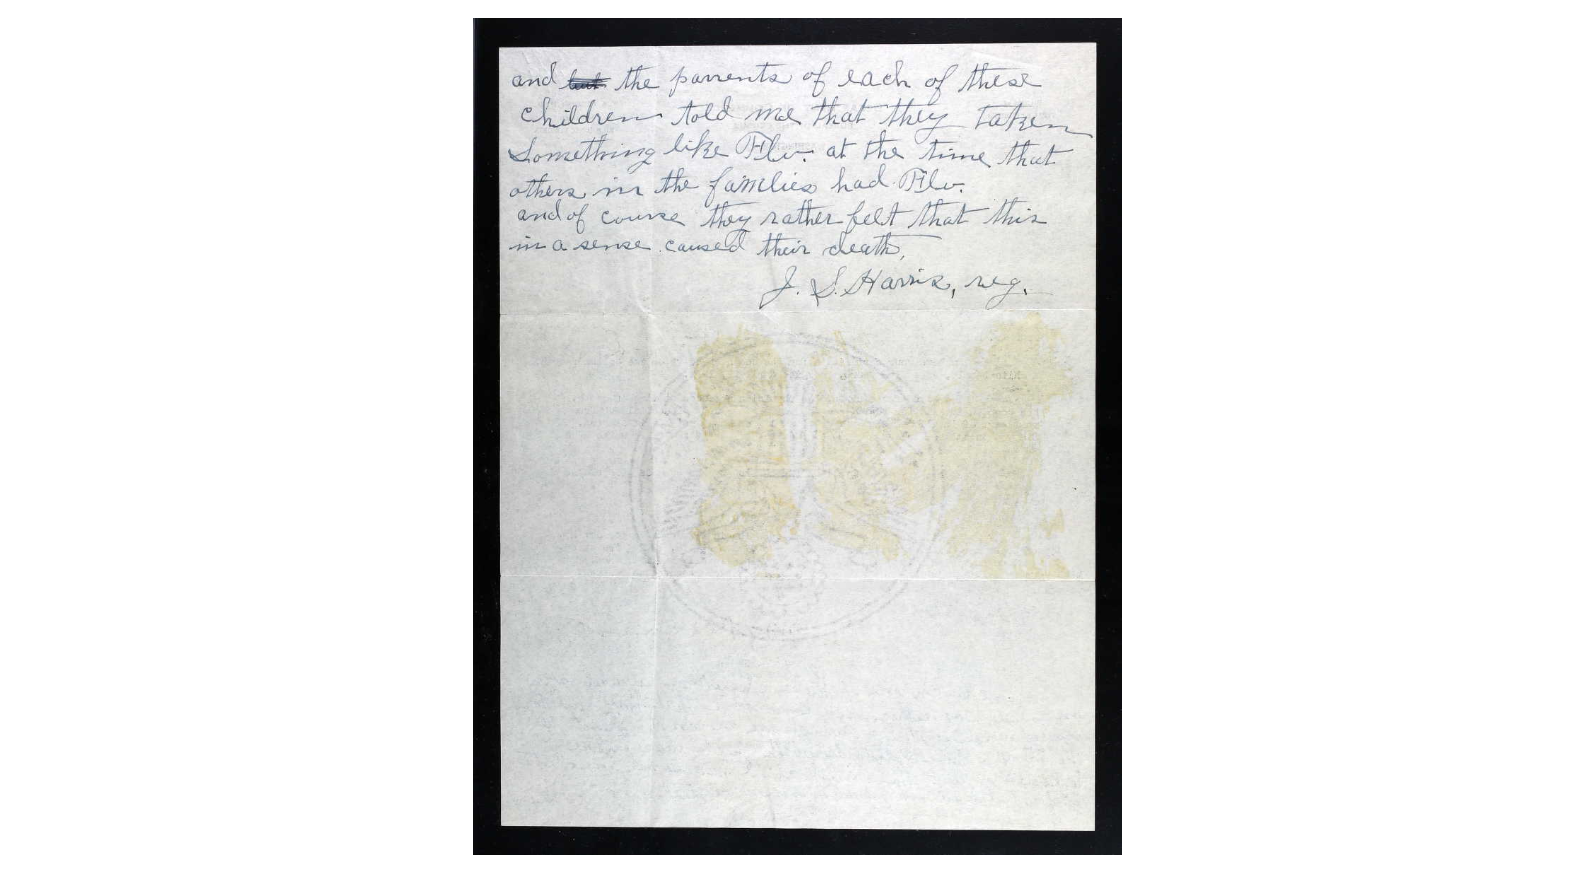 and but the parrents of each of these
children told me that they taken
Something like Flu. at the time that
others in the families had Flu.
and of course they rather felt that this
in a sense caused their death.
J. S. Harris, reg.